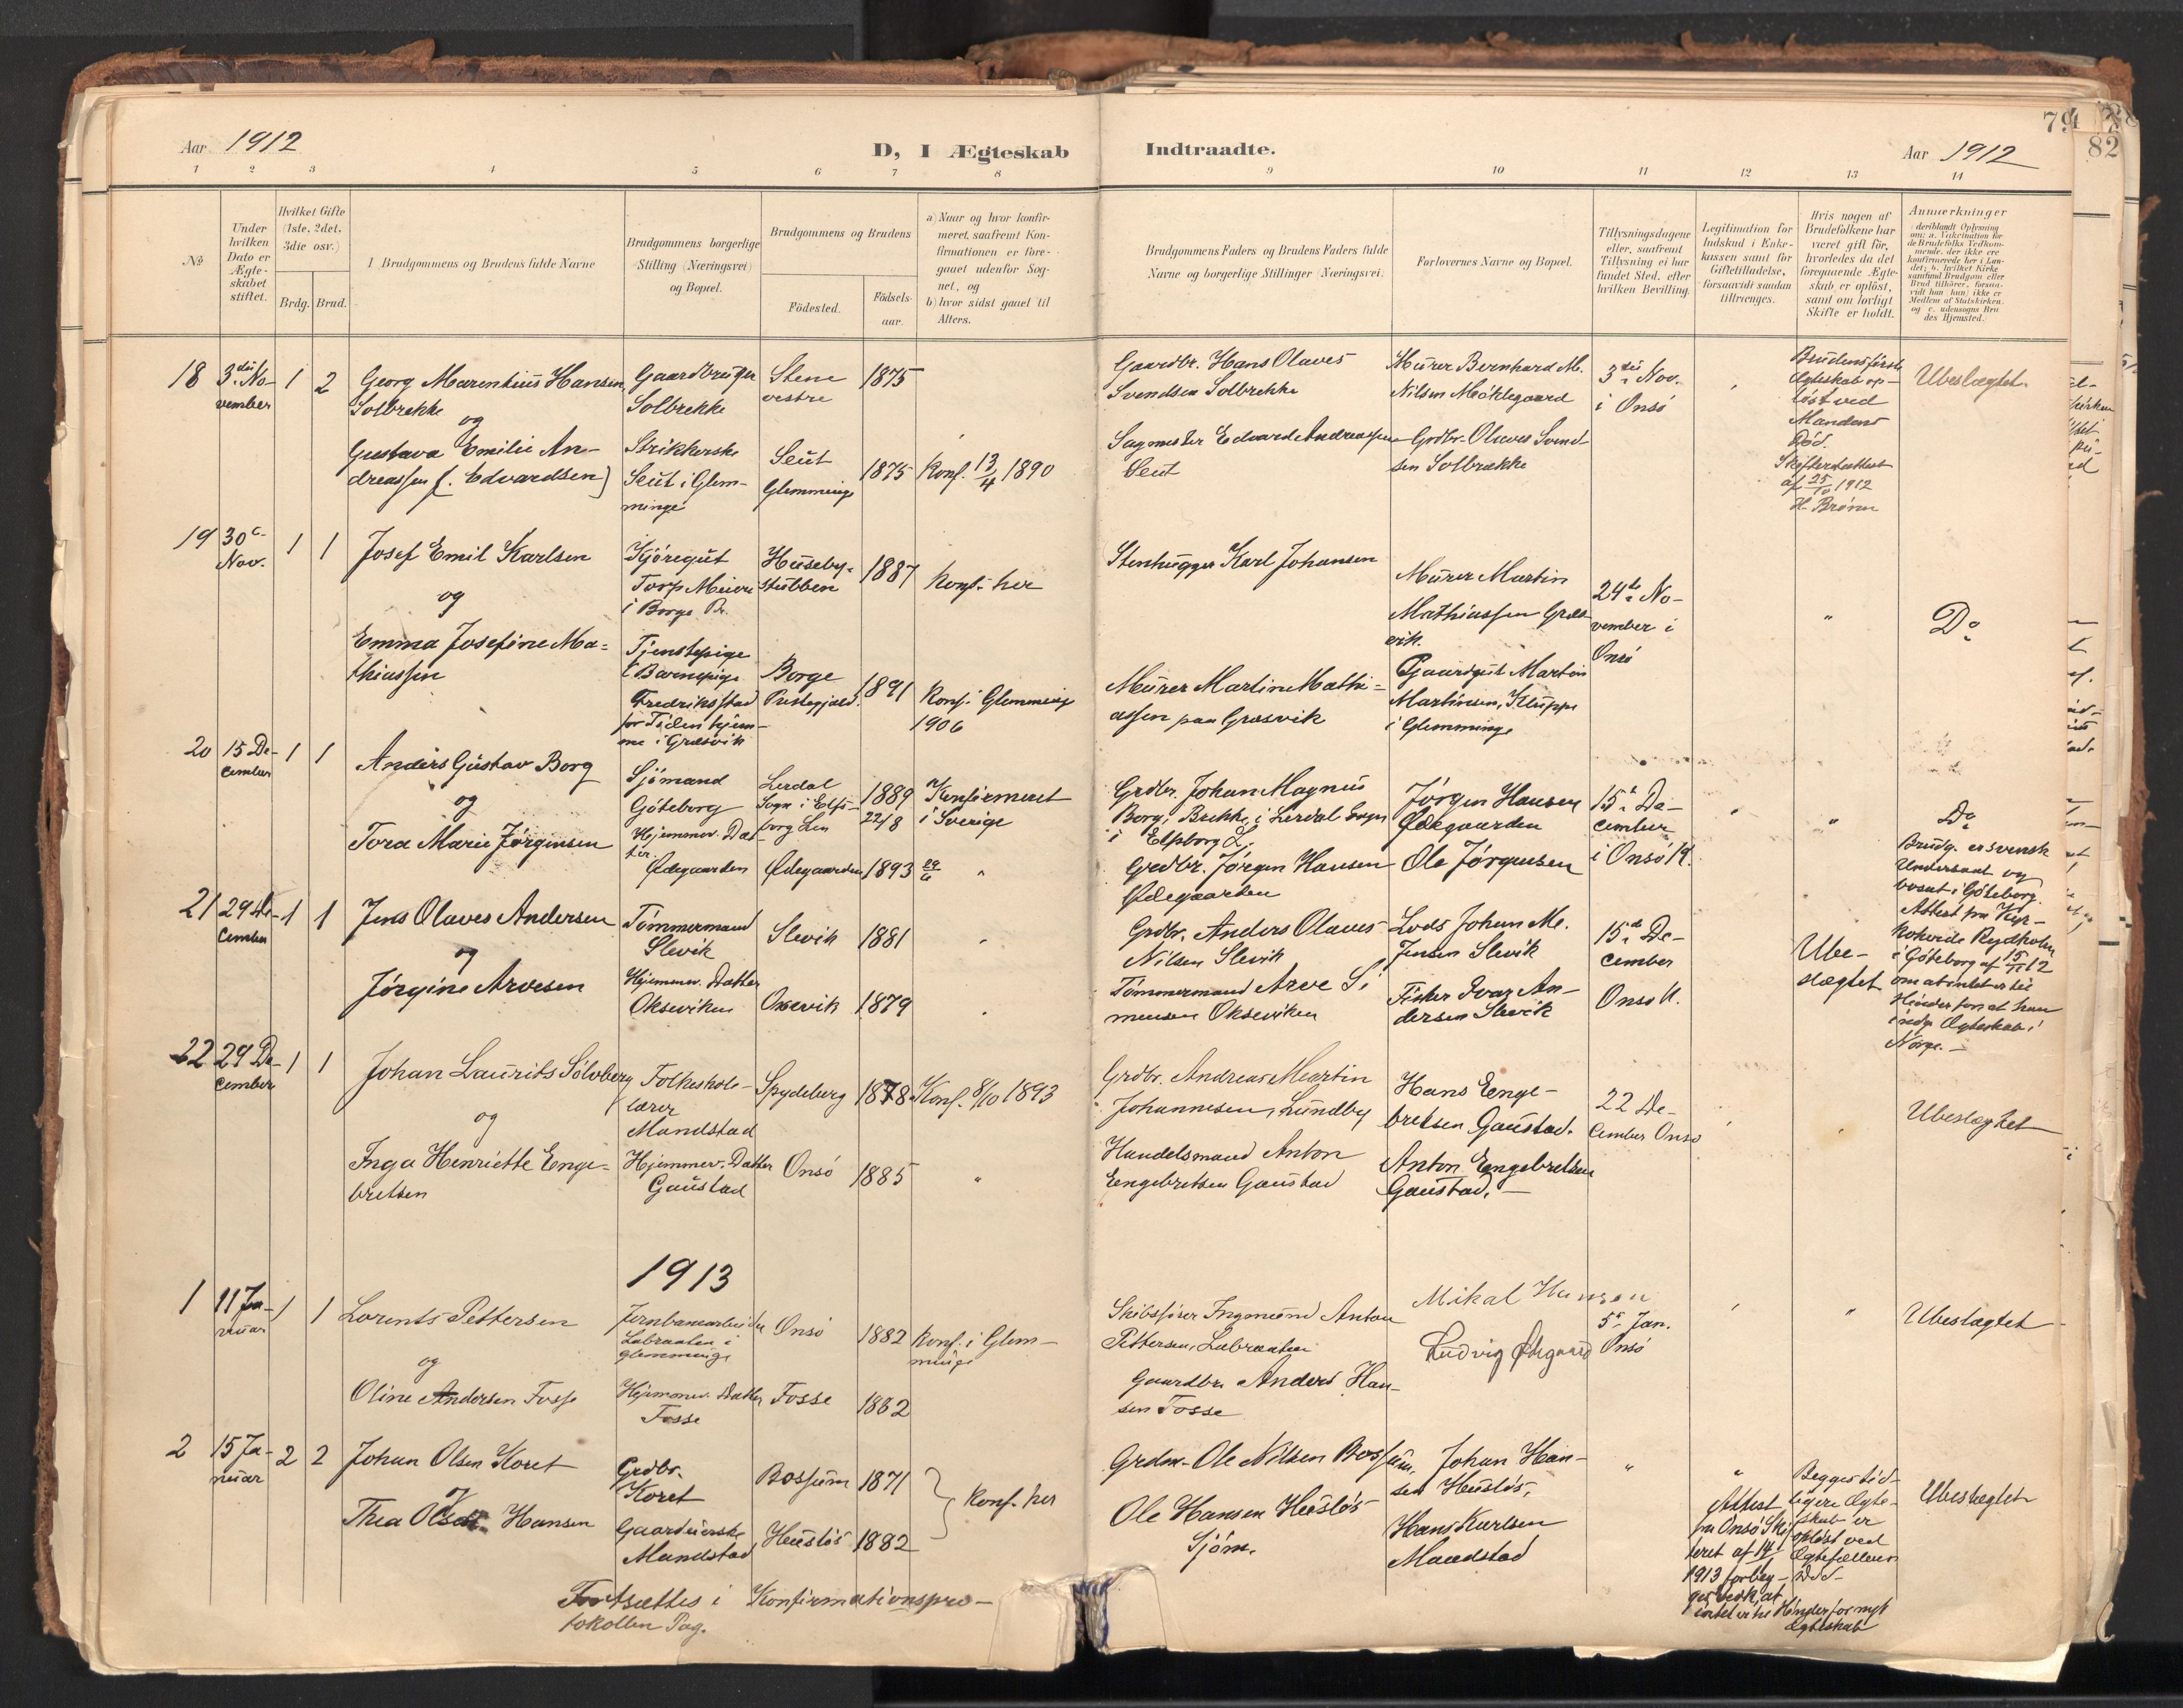 Aar 1912
D, I Ægteskab
Indtraadte.
Aar 1912
79
82
1 2 3 4 5 6 7 8 9 10 11 12 13 14
№
Under
hvilken
Dato er
Ægte-
skabet
stiftet.
Hvilket Gifte
(1ste, 2det,
3die osv.)
Brdg. Brud.
Brudgommens og Brudens fulde Navne
Brudgommens borgerlige
Stilling (Næringsvei)
og Bopæl.
Brudgommens og Brudens
Födested.
Födsels-
aar.
a) Naar og hvor konfir-
meret, saafremt Kon-
firmationen er fore-
gaaet udenfor Sog-
net, og
b) hvor sidst gaaet til
Alters.
Brudgommens Faders og Brudens Faders fulde
Navne og borgerlige Stillinger (Næringsvei).
Forlovernes Navne og Bopæl.
Tillysningsdagene
eller, saafremt
Tillysning ei har
fundet Sted, efter
hvilken Bevilling.
Legitimation for
Indskud i Enke-
kassen samt for
Giftetilladelse,
forsaavidt saadan
tiltrænges.
Hvis nogen af
Brudefolkene har
været gift för,
hvorledes da det
foregaaende Ægte-
skab er oplöst,
samt om lovligt
Skifte er holdt.
Anmærkninger
(deriblandt Oplysning
om: a. Vakcination for
de Brudefolks Vedkom-
mende, der ikke ere
konfirmerede her i Lan-
det; b. hvilket Kirke
samfund Brudgom eller
Brud tilhörer, forsaa-
vidt han (hun) ikke er
Medlem af Statskirken,
og c. udensogns Bru
des Hjemsted.
18 3die No-
vember
1 2
Georg Marentius Hansen
Solbrekke
og
Gustava Emilie An-
dreassen f. Edvardsen)
Gaardbruger
Solbrekke
Strikkerske
Seut i Glem-
minge
Stene
vestre
Seut
Glemminge
1875
1875
Konf. 13/4 1890
Gaardbr. Hans Olaves
Svendsen Solbrekke
Sagmester Edvard Andreassen
Seut
Murer Bernhard M.
Nilsen Möklegaard
Grdbr. Olaves Svend-
sen Solbrække
3die Nov.
i Onsö
Brudens förste
Ægteskab op-
löst ved
Mandens
Död.
Skifteattest
af 25/10 1912
Ubeslægtet.
19 30te
Nov.
1 1
Josef Emil Karlsen
og
Emma Josefine Ma-
thiassen
Kjöregut
Torp Meieri
i Borge Pr.
Tjenstepige
(Barnepige
Fredriksstad
for Tiden hjem-
me i Græsvik
Huseby-
stubben
Borge
Prstegjæld.
1887
1891
Konf. her
Konf. i Glemminge
1906
Stenhugger Karl Johansen
Murer Martin Mathi-
assen paa Græsvik
Murer Martin
Mathiassen Græs-
vik.
Gaardgut Martin
Martinsen, Kluppe
i Glemminge
24de No-
vember i
Onsö
"
Do
20 15 De-
cember
1 1
Anders Gustav Borg
og
Tora Marie Jörginsen
Sjömand
Göteborg
Hjemmev. Dat
ter.
Ødegaarden
Lerdal
Sogn i Elfs-
borg Len
Ødegaarden
1889
22/8
1893 29/6
Konfirmeret
i Sverige
"
Grdbr. Johan Magnus
Borg, Brekke, i Lerdal Sogn
i Elfsborg L.
Grdbr. Jörgen Hansen
Ødegaarden
Jörgen Hansen
Ødegaarden
Ole Jörgensen
15de De-
cember
i Onsö K.
"
Do
Brudg. er svensk
Undersaat og
bosat i Göteborg.
Attest fra Kyr-
koherde Rydholm
i Göteborg af 15/11 12
om at intet er til
Hinder for at han
indgr Ægteskab i
Norge.
21 29 De-
cember
1 1
Jens Olaves Andersen
og
Jørgine Arvesen
Tömmermand
Slevik
Hjemmev. Datter
Okseviken
Slevik
Oxevik
1881
1879
Grdbr. Anders Olaves
Nilsen Slevik
Tömmermand Arve Si
monsen Okseviken
Lods Johan M.
Jensen Slevik
Fisker Ivar An-
dersen Slevik
15de De-
cember
Onsö K.
Ube-
slægtet
22 29 De-
cember
1 1
Johan Laurits Sölvberg
og
Inga Henriette Enge-
bretsen
Folkeskole-
lærer
Mandstad
Hjemmev. Datter
Gaustad
Spydeberg
Onsö
1878
1885
Konf. 8/10 1893
"
Grdbr. Andreas Martin
Johannesen, Lundby
Handelsmand Anton
Engebretsen Gaustad
Hans Enge-
bretsen Gaustad.
Anton Engebretsen
Gaustad.
22 De-
cember Onsö
Ubeslægtet
1913
1 11 Ja-
nuar
1 1
Lorents Pettersen
og
Oline Andersen Fosse
Jernbanearbeider
Labraaten i
Glemminge
Hjemmev. Datter
Fosse
Onsö
Fosse
1882
1882
Konf. i Glem-
minge
Skibsförer Ingemund Anton
Pettersen, Labraaten
Gaardbr. Anders Han-
sen Fosse
Mikal Hansen
Ludvig Østgaard
5te Jan.
Onsö
"
Ubeslægtet
2 15 Ja-
nuar
2 2
Johan Olsen Koret
og
Thea Olsen Hansen
Grdbr.
Koret
Gaardeierske
Mandstad
Bossum
Heuslös
1871
1882
Konf. her
Grdm. Ole Nilsen Bossum,
Ole Hansen Heuslös
Sjöm.
Johan Han-
sen Heuslös,
Hans Karlsen
Mandstad
"
"
Attest
fra Onsö Skif
teret af 14/1
1913
intet er til Hinder for nyt
Ægteskab
Begges tid-
ligere Ægte-
skab er
oplöst ved
Ægtefællens
Död
Ubeslægtet
Fortsættes i Konfirmationspro-
tokollen Pag.